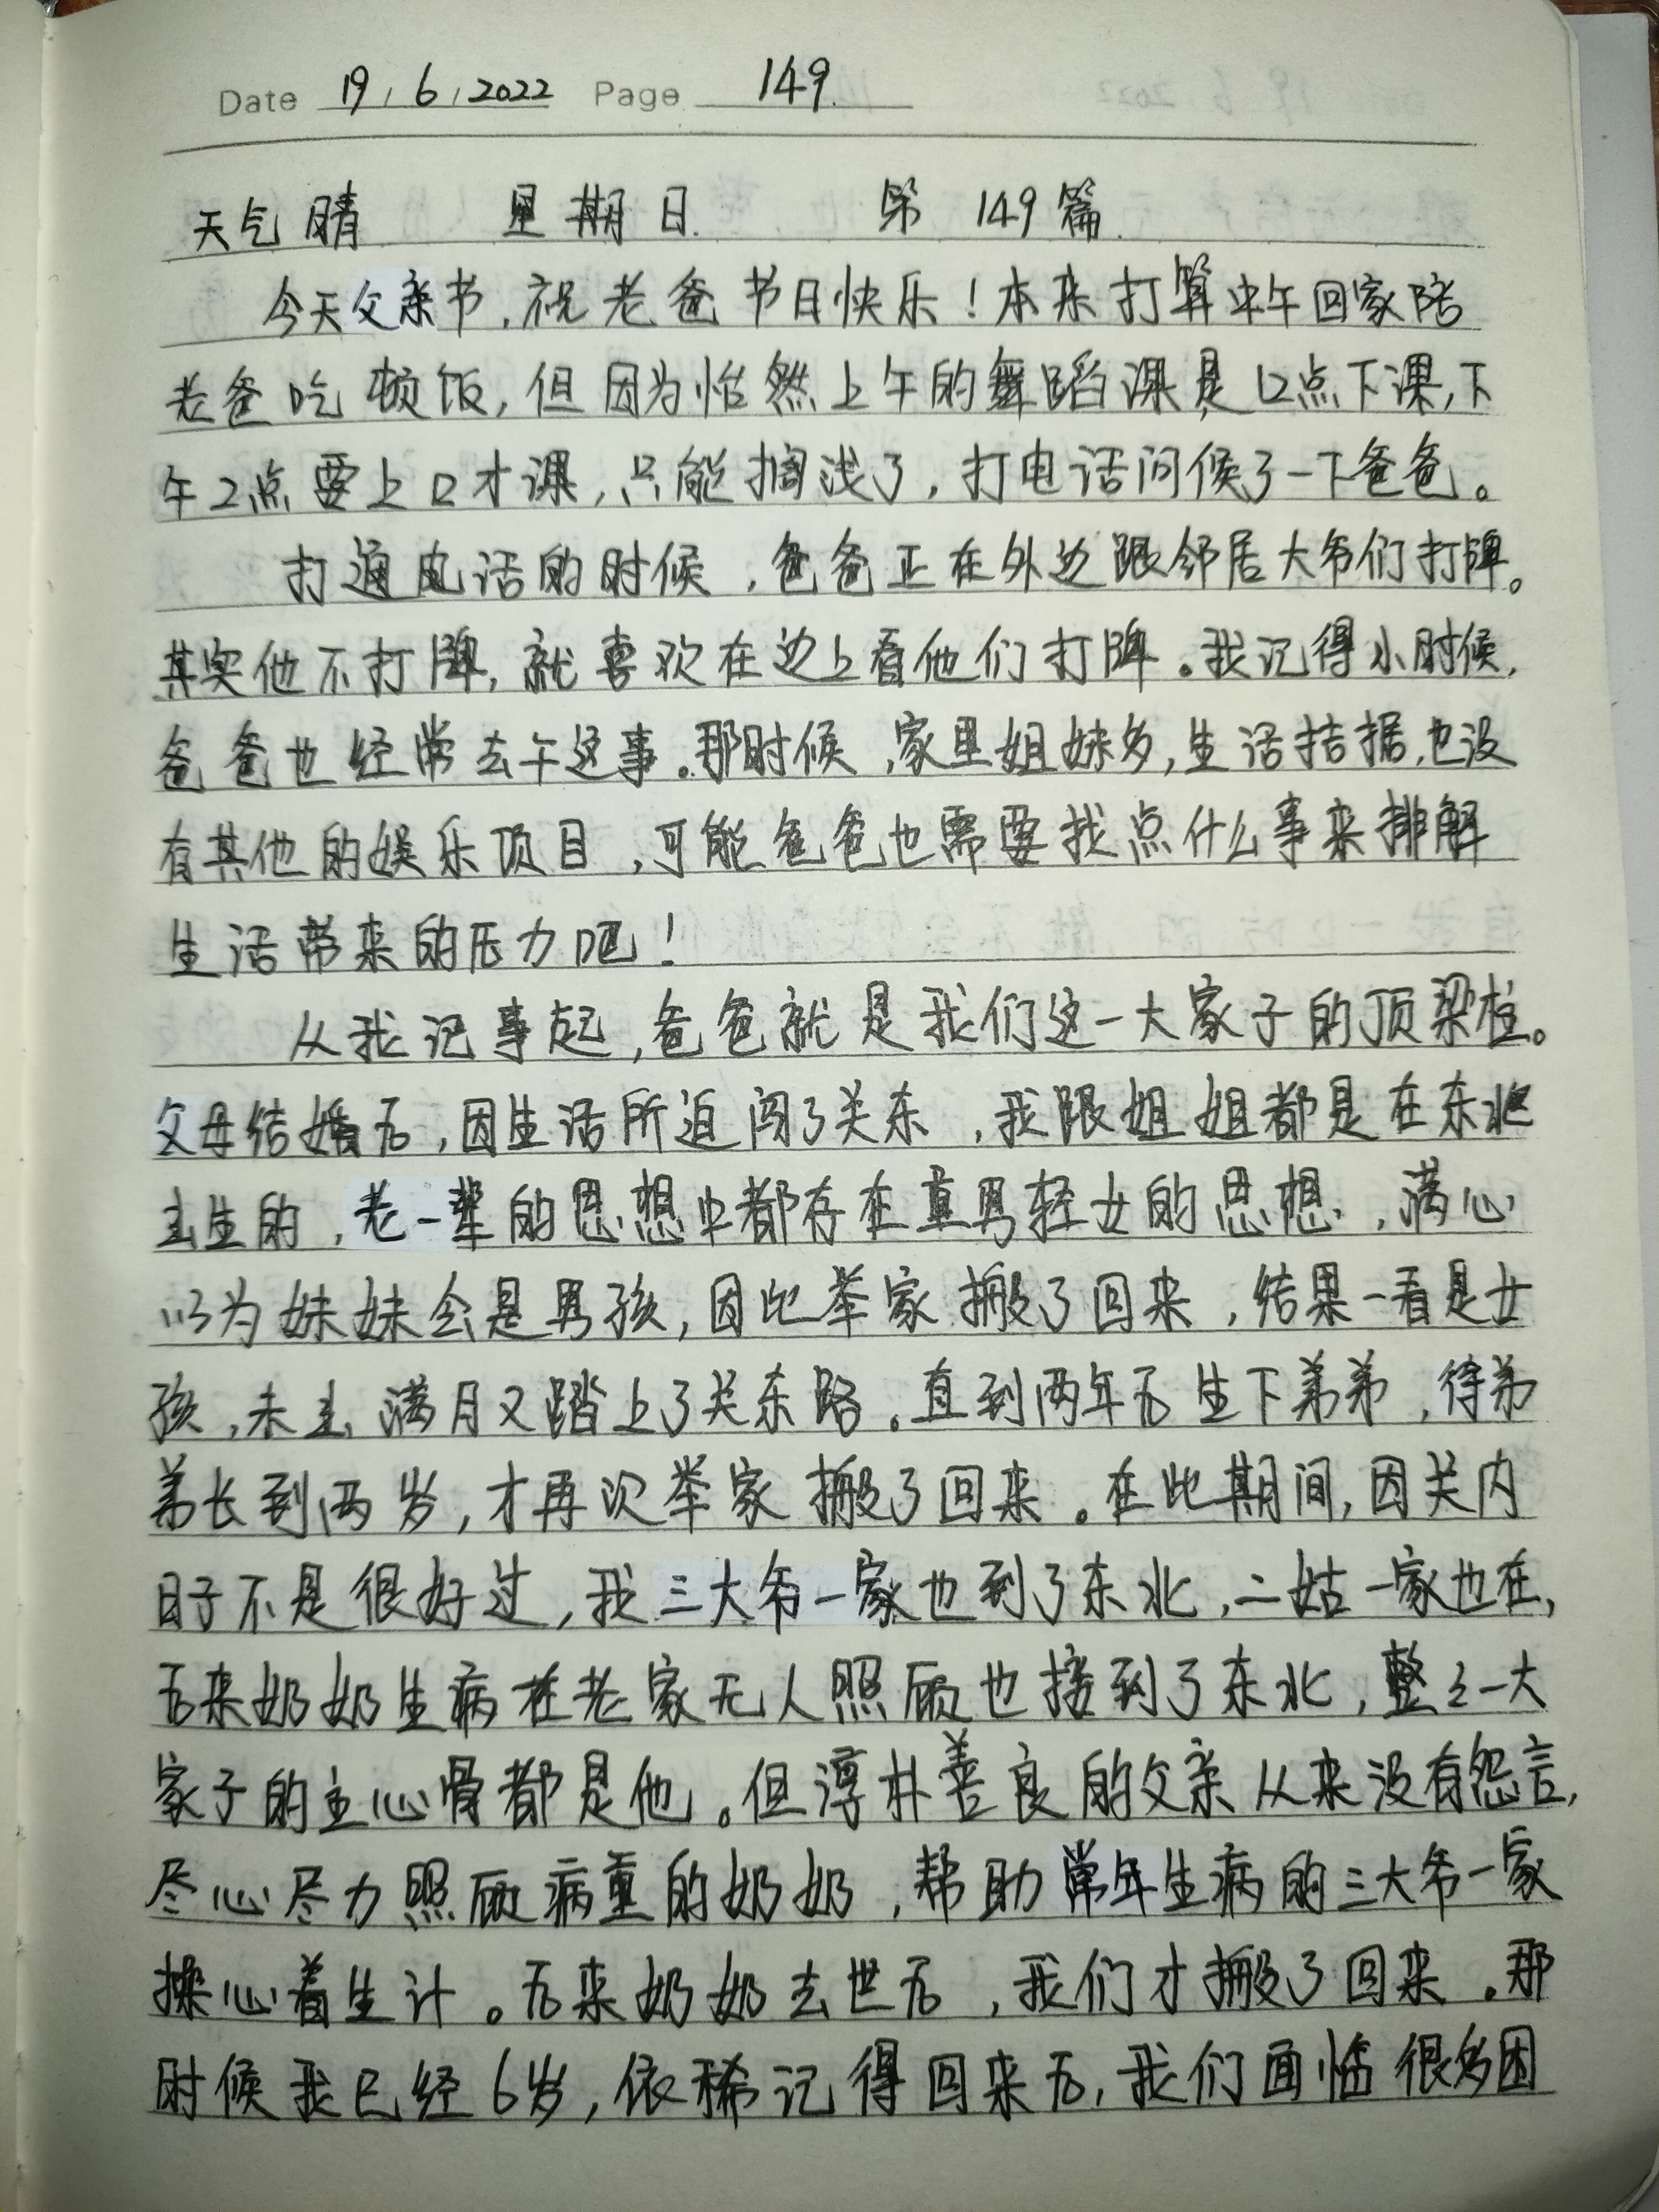 Date 19 / 6 / 2022 Page 149
天气晴 星期日. 第 149 篇.
今天父亲节,祝老爸节日快乐!本来打算中午回家陪
老爸吃顿饭,但因为怡然上午的舞蹈课是12点下课,下
午2点要上口才课,只能搁浅了,打电话问候了一下爸爸。
打通电话的时候,爸爸正在外边跟邻居大爷们打牌。
其实他不打牌,就喜欢在边上看他们打牌。我记得小时候,
爸爸也经常去干这事。那时候,家里姐妹多,生活拮据,也没
有其他的娱乐项目,可能爸爸也需要找点什么事来排解
生活带来的压力吧!
从我记事起,爸爸就是我们这一大家子的顶梁柱。
父母结婚后,因生活所迫闯了关东,我跟姐姐都是在东北
出生的,老一辈的思想中都存在重男轻女的思想,满心
以为妹妹会是男孩,因此举家搬了回来,结果一看是女
孩,未出满月又踏上了关东路。直到两年后生下弟弟,待弟
弟长到两岁,才再次举家搬了回来。在此期间,因关内
日子不是很好过,我三大爷一家也到了东北,二姑一家也在,
后来奶奶生病在老家无人照顾也接到了东北,整整一大
家子的主心骨都是他。但淳朴善良的父亲从来没有怨言,
尽心尽力照顾病重的奶奶,帮助常年生病的三大爷一家
操心着生计。后来奶奶去世后,我们才搬了回来。那
时候我已经6岁,依稀记得回来后,我们面临很多困